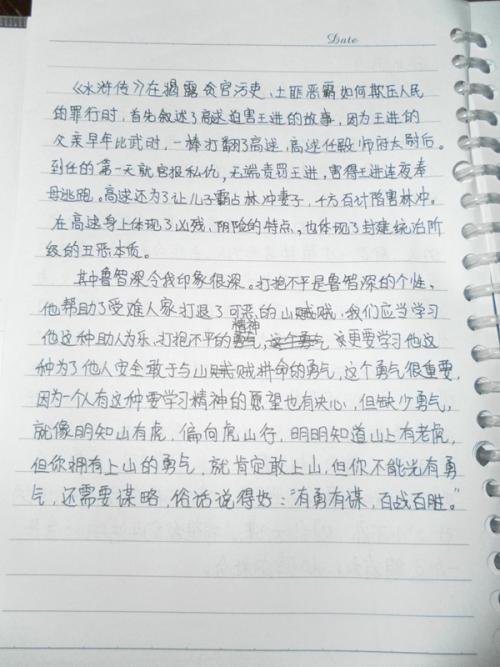 Date
《水浒传》在揭露贪官污吏、土匪恶霸如何欺压人民
的罪行时，首先叙述了高俅迫害王进的故事，因为王进的
父亲早年比武时，一棒打翻了高俅，高俅任殿师府太尉后。
到任的第一天就官报私仇，无端责罚王进，害得王进连夜奉
母逃跑。高俅还为了让儿子霸占林冲妻子，千方百计陷害林冲。
在高俅身上体现了凶残、阴险的特点，也体现了封建统治阶
级的丑恶本质。
其中鲁智深令我印象很深。打抱不平是鲁智深的个性，
他帮助了受难人家打退了可恶的山贼贼，我们应当学习
精神
他这种助人为乐，打抱不平的勇气，这个勇气 我更要学习他这
种为了他人安全敢于与山贼贼拼命的勇气，这个勇气很重要，
因为一个人有这种要学习精神的愿望也有决心，但缺少勇气，
就像明知山有虎，偏向虎山行，明明知道山上有老虎，
但你拥有上山的勇气，就肯定敢上山，但你不能光有勇
气，还需要谋略，俗话说得好："有勇有谋，百战百胜。"